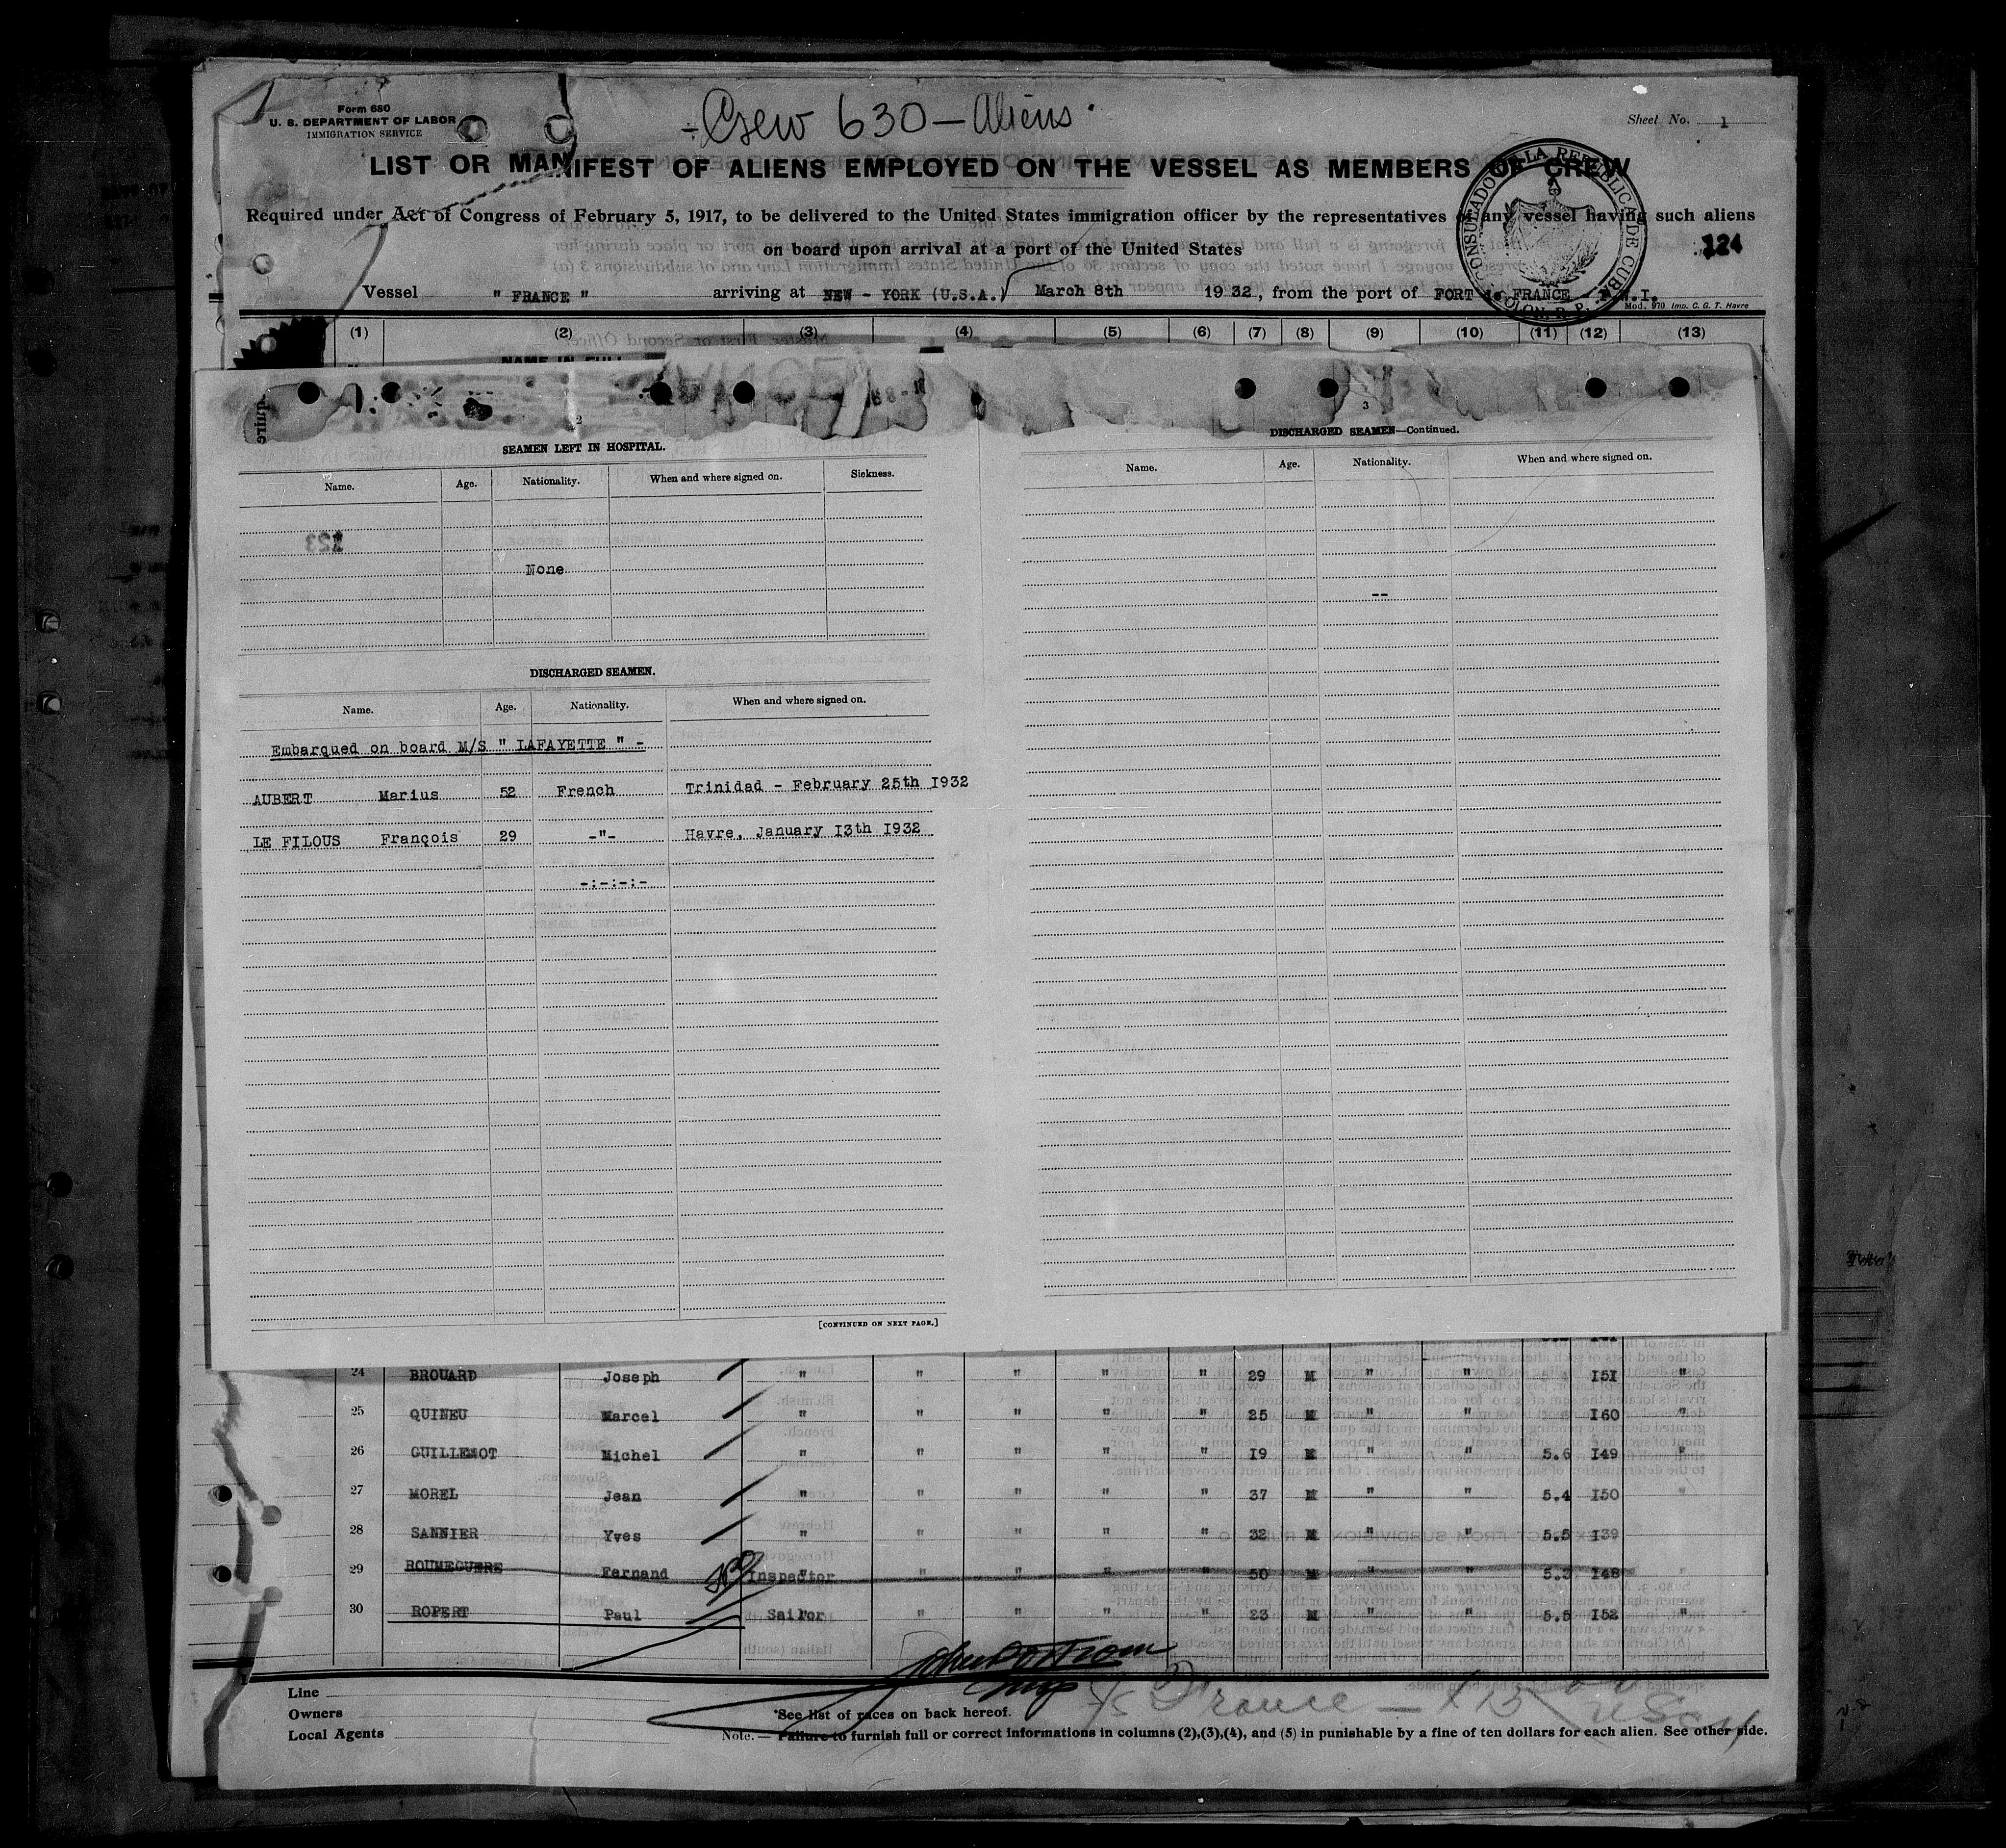 Form 680
U. S. DEPARTMENT OF LABOR
IMMIGRATION SERVICE
Crew 630 — Aliens.
Sheet No. 1
LIST OR MANIFEST OF ALIENS EMPLOYED ON THE VESSEL AS MEMBERS OF CREW
Required under Act of Congress of February 5, 1917, to be delivered to the United States immigration officer by the representatives of any vessel having such aliens
on board upon arrival at a port of the United States
124
CONSULADO DE LA REPUBLICA DE CUBA
COLON, R. P.
Vessel " FRANCE " arriving at NEW - YORK (U.S.A.) March 8th 1932, from the port of FORT de FRANCE - F.W.I.
Mod. 970 Imp. C. G. T. Havre
(1) (2) (3) (4) (5) (6) (7) (8) (9) (10) (11) (12) (13)
NAME IN FULL
2
SEAMEN LEFT IN HOSPITAL.
Name. Age. Nationality. When and where signed on. Sickness.
123
None
DISCHARGED SEAMEN.
Name. Age. Nationality. When and where signed on.
Embarqued on board M/S " LAFAYETTE " -
AUBERT Marius 52 French Trinidad - February 25th 1932
LE FILOUS François 29 -"- Havre, January 13th 1932
-:-:-:-
[CONTINUED ON NEXT PAGE.]
3
DISCHARGED SEAMEN—Continued.
Name. Age. Nationality. When and where signed on.
--
24 BROUARD Joseph " " " " " 29 M " " 151 "
25 QUINEU Marcel " " " " " 25 M " " 160 "
26 GUILLEMOT Michel " " " " " 19 M " " 5.6 149 "
27 MOREL Jean " " " " " 37 M " " 5.4 150 "
28 SANNIER Yves " " " " " 32 M " " 5.5 139
29 ROUMEGUERE Fernand Inspector " " " " 50 M " " 5.3 148 "
30 ROPERT Paul Sailor " " " " 23 M " " 5.5 152 "
Line
Owners
Local Agents
*See list of races on back hereof.
Note. — Failure to furnish full or correct informations in columns (2),(3),(4), and (5) in punishable by a fine of ten dollars for each alien. See other side.